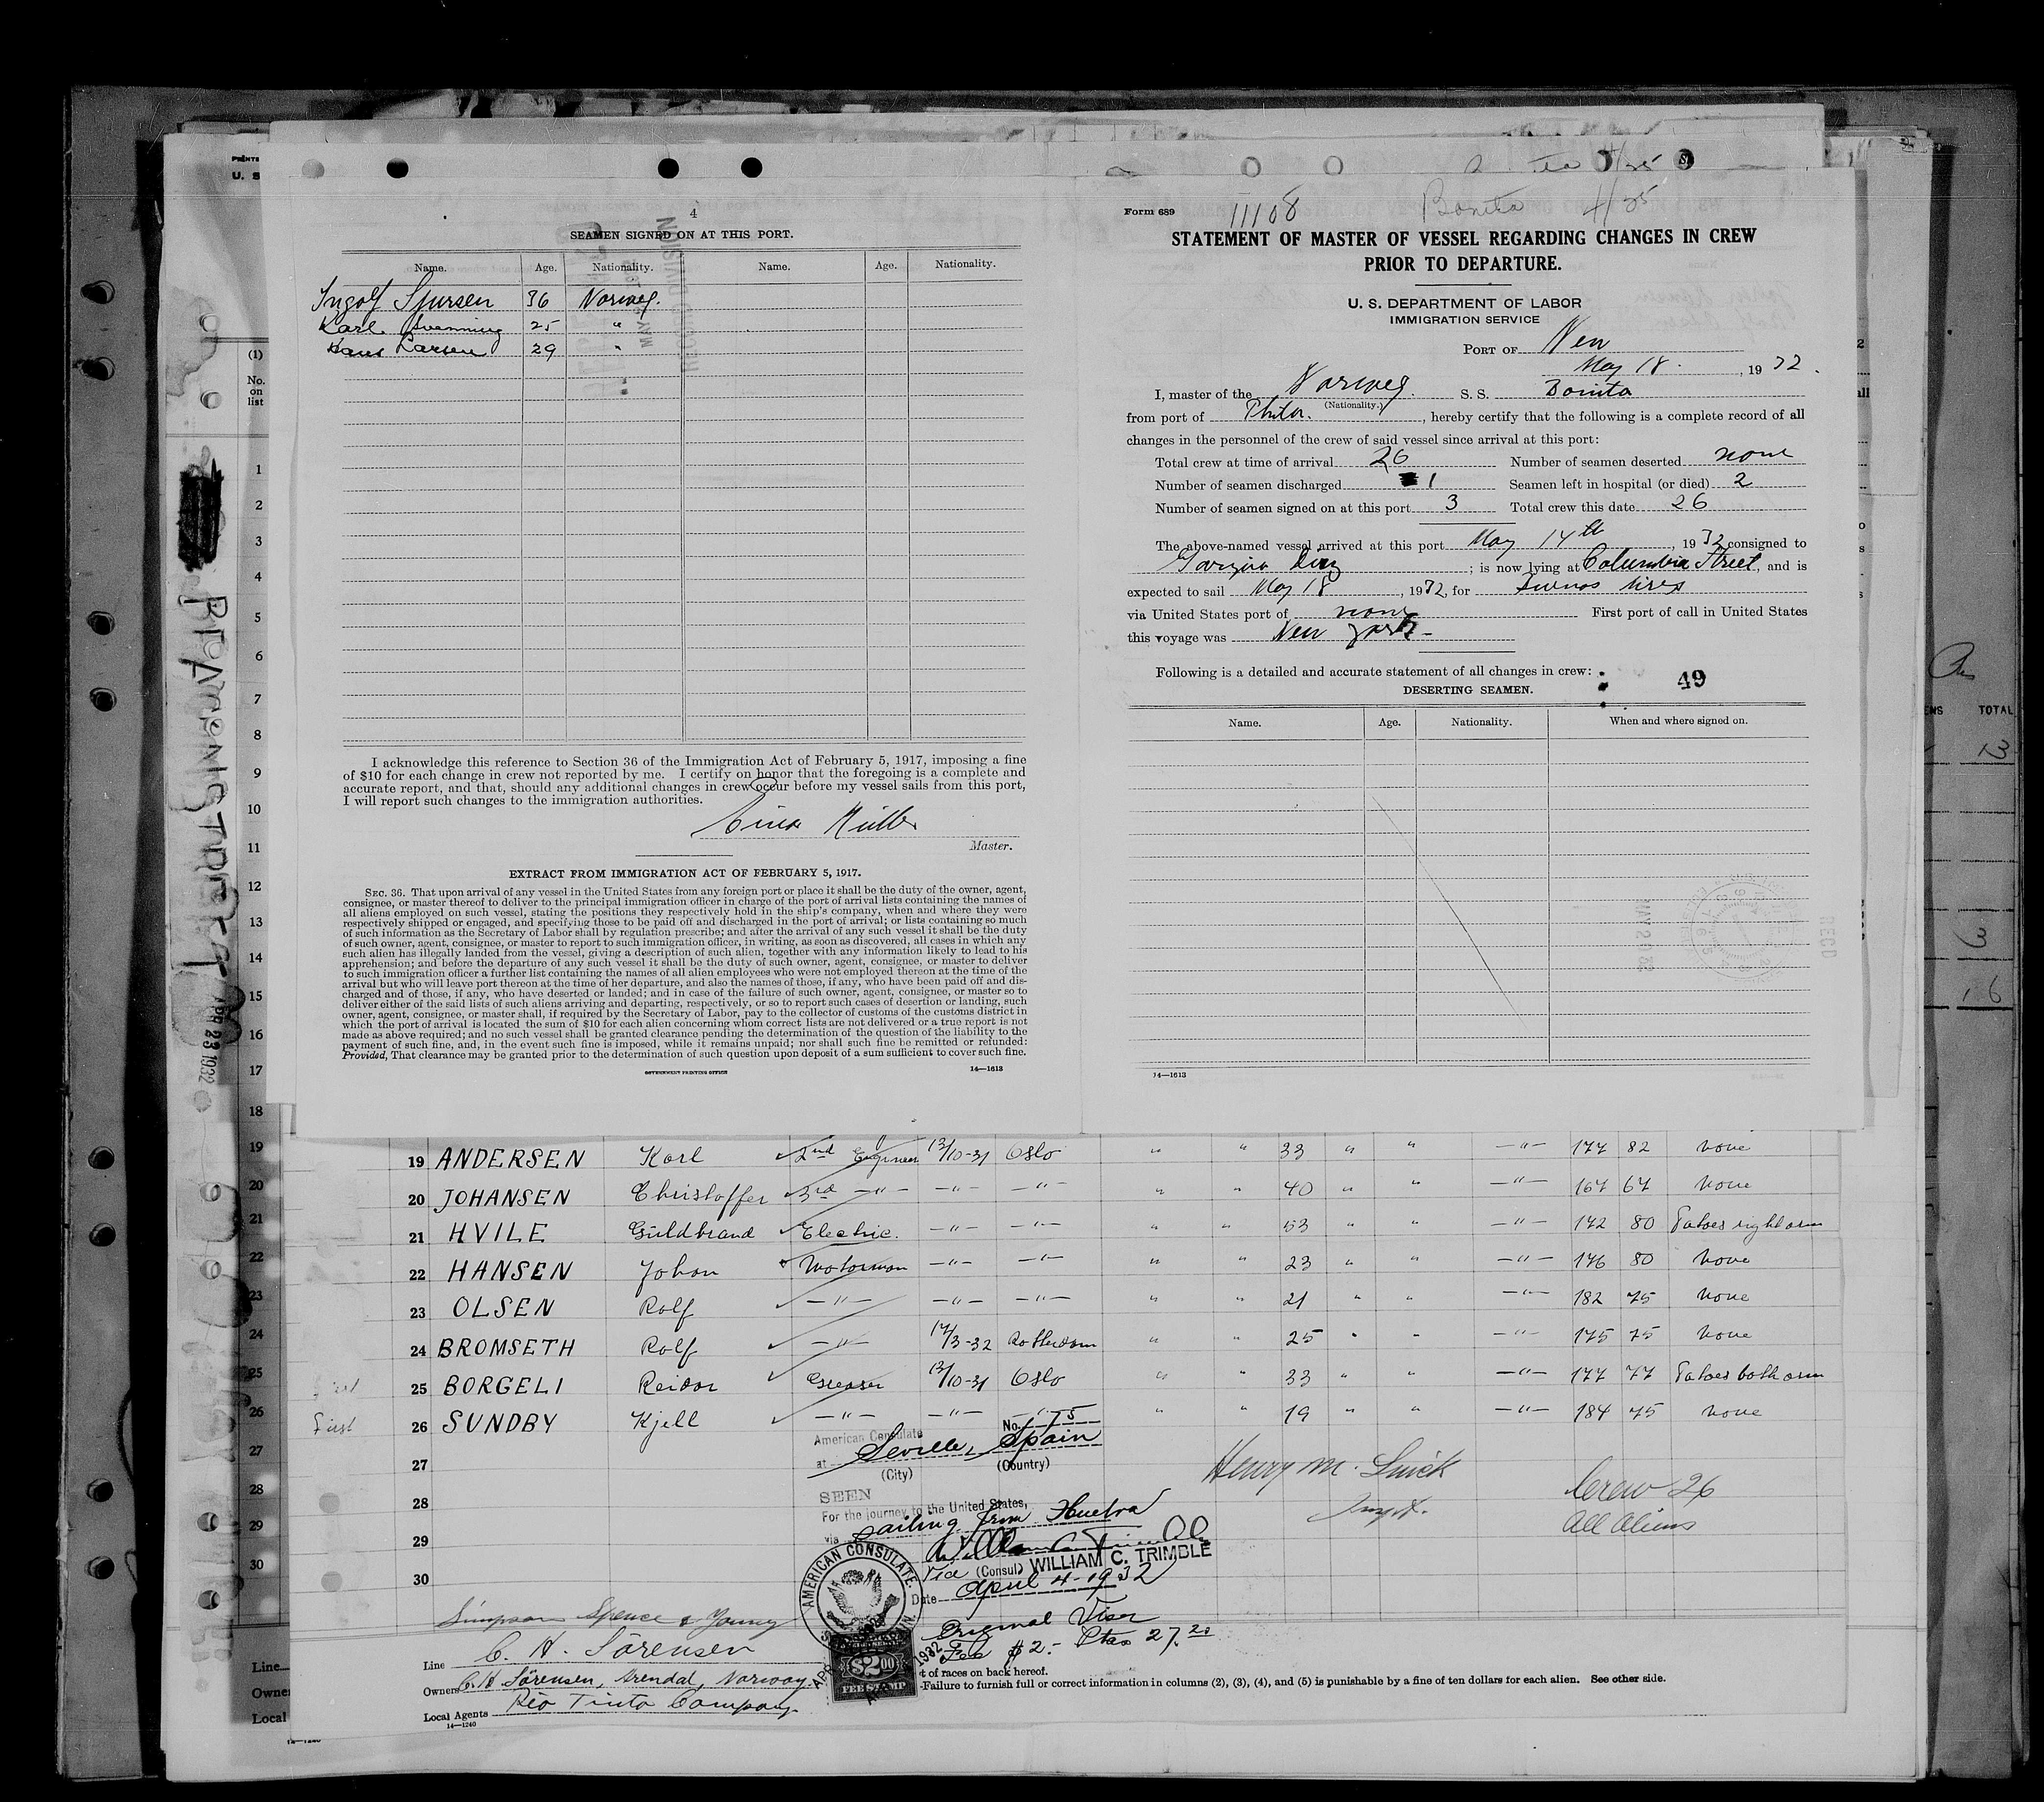 4
SEAMEN SIGNED ON AT THIS PORT.
Name. Age. Nationality. Name. Age. Nationality.
Ingolf Sjursen 36 Norweg.
Karl Svenning 25 "
Hans Larsen 29 "
I acknowledge this reference to Section 36 of the Immigration Act of February 5, 1917, imposing a fine
of $10 for each change in crew not reported by me. I certify on honor that the foregoing is a complete and
accurate report, and that, should any additional changes in crew occur before my vessel sails from this port,
I will report such changes to the immigration authorities.
Master.
EXTRACT FROM IMMIGRATION ACT OF FEBRUARY 5, 1917.
SEC. 36. That upon arrival of any vessel in the United States from any foreign port or place it shall be the duty of the owner, agent,
consignee, or master thereof to deliver to the principal immigration officer in charge of the port of arrival lists containing the names of
all aliens employed on such vessel, stating the positions they respectively hold in the ship's company, when and where they were
respectively shipped or engaged, and specifying those to be paid off and discharged in the port of arrival; or lists containing so much
of such information as the Secretary of Labor shall by regulation prescribe; and after the arrival of any such vessel it shall be the duty
of such owner, agent, consignee, or master to report to such immigration officer, in writing, as soon as discovered, all cases in which any
such alien has illegally landed from the vessel, giving a description of such alien, together with any information likely to lead to his
apprehension; and before the departure of any such vessel it shall be the duty of such owner, agent, consignee, or master to deliver
to such immigration officer a further list containing the names of all alien employees who were not employed thereon at the time of the
arrival but who will leave port thereon at the time of her departure, and also the names of those, if any, who have been paid off and dis-
charged and of those, if any, who have deserted or landed; and in case of the failure of such owner, agent, consignee, or master so to
deliver either of the said lists of such aliens arriving and departing, respectively, or so to report such cases of desertion or landing, such
owner, agent, consignee, or master shall, if required by the Secretary of Labor, pay to the collector of customs of the customs district in
which the port of arrival is located the sum of $10 for each alien concerning whom correct lists are not delivered or a true report is not
made as above required; and no such vessel shall be granted clearance pending the determination of the question of the liability to the
payment of such fine, and, in the event such fine is imposed, while it remains unpaid; nor shall such fine be remitted or refunded:
Provided, That clearance may be granted prior to the determination of such question upon deposit of a sum sufficient to cover such fine.
GOVERNMENT PRINTING OFFICE 14—1613
Form 689 11108 Bonita 4/35
STATEMENT OF MASTER OF VESSEL REGARDING CHANGES IN CREW
PRIOR TO DEPARTURE.
U. S. DEPARTMENT OF LABOR
IMMIGRATION SERVICE
PORT OF New
May 18, 1932.
I, master of the Norweg. S. S. Bonita
(Nationality.)
from port of Phila., hereby certify that the following is a complete record of all
changes in the personnel of the crew of said vessel since arrival at this port:
Total crew at time of arrival 26 Number of seamen deserted none
Number of seamen discharged 1 Seamen left in hospital (or died) 2
Number of seamen signed on at this port 3 Total crew this date 26
The above-named vessel arrived at this port May 14th, 1932 consigned to
; is now lying at Columbia Street, and is
expected to sail May 18, 1932, for Buenos Aires
via United States port of none First port of call in United States
this voyage was New York
Following is a detailed and accurate statement of all changes in crew:
49
DESERTING SEAMEN.
Name. Age. Nationality. When and where signed on.
REC'D
14—1613
PRINTE
U. S
(1)
No.
on
list
1
2
3
4
5
6
7
8
9
10
11
12
13
14
15
16
17
18
19
20
21
22
23
24
25
26
27
28
29
30
APR 23 1932
TOTAL
13
3
16
19 ANDERSEN Karl 2nd Engineer 13/10-31 Oslo " " 33 " " —"— 177 82 none
20 JOHANSEN Christoffer 3rd —"— —"— —"— " " 40 " " —"— 167 67 none
21 HVILE Guldbrand Electric. —"— —"— " " 53 " " —"— 172 80 Tatoes right arm
22 HANSEN Johan Motorman —"— —"— " " 23 " " —"— 176 80 none
23 OLSEN Rolf —"— —"— —"— " " 21 " " —"— 182 75 none
24 BROMSETH Rolf —"— 17/3-32 Rotterdam " " 25 " " —"— 175 75 none
25 BORGELI Reidar Greaser 13/10-31 Oslo " " 33 " " —"— 177 77 Tatoes both arm
First 26 SUNDBY Kjell —"— —"— —"— " " 19 " " —"— 184 75 none
27
28
29
30
American Consulate No. 75
at Seville, Spain
(City) (Country)
SEEN
For the journey to the United States,
via sailing from Huelva
Vice (Consul) WILLIAM C. TRIMBLE
Date April 4-1932
AMERICAN CONSULATE
Original Visa
Fee $2.- Ptas 27.20
$2.00
FEE STAMP
Crew 26
All Aliens
Simpson Spence & Young
Line C. H. Sörensen
Owners C. H Sörensen, Arendal, Norway.
Local Agents Rio Tinto Company
14—1240
t of races on back hereof.
Failure to furnish full or correct information in columns (2), (3), (4), and (5) is punishable by a fine of ten dollars for each alien. See other side.
Line
Owne
Local